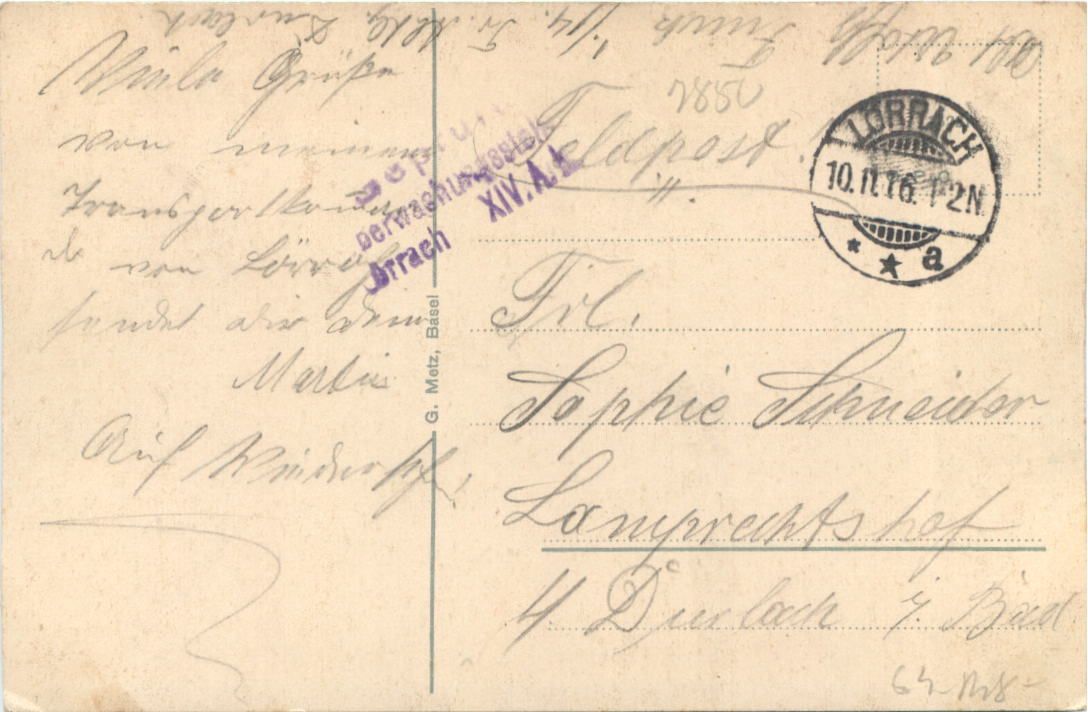 Viele Grüße
von meinem
Transportkoman
do von Lörrach
sendet dir dein
Martin
Auf Wiedersehn!
G. Metz, Basel
Geprüft
berwachungsstelle
örrach XIV. A. k.
2850
Feldpost.
LÖRRACH
10.11.16. 1-2N.
* ★ a
Frl.
Sophie Schneider
Lamprechtshof
Durlach i/ Bad